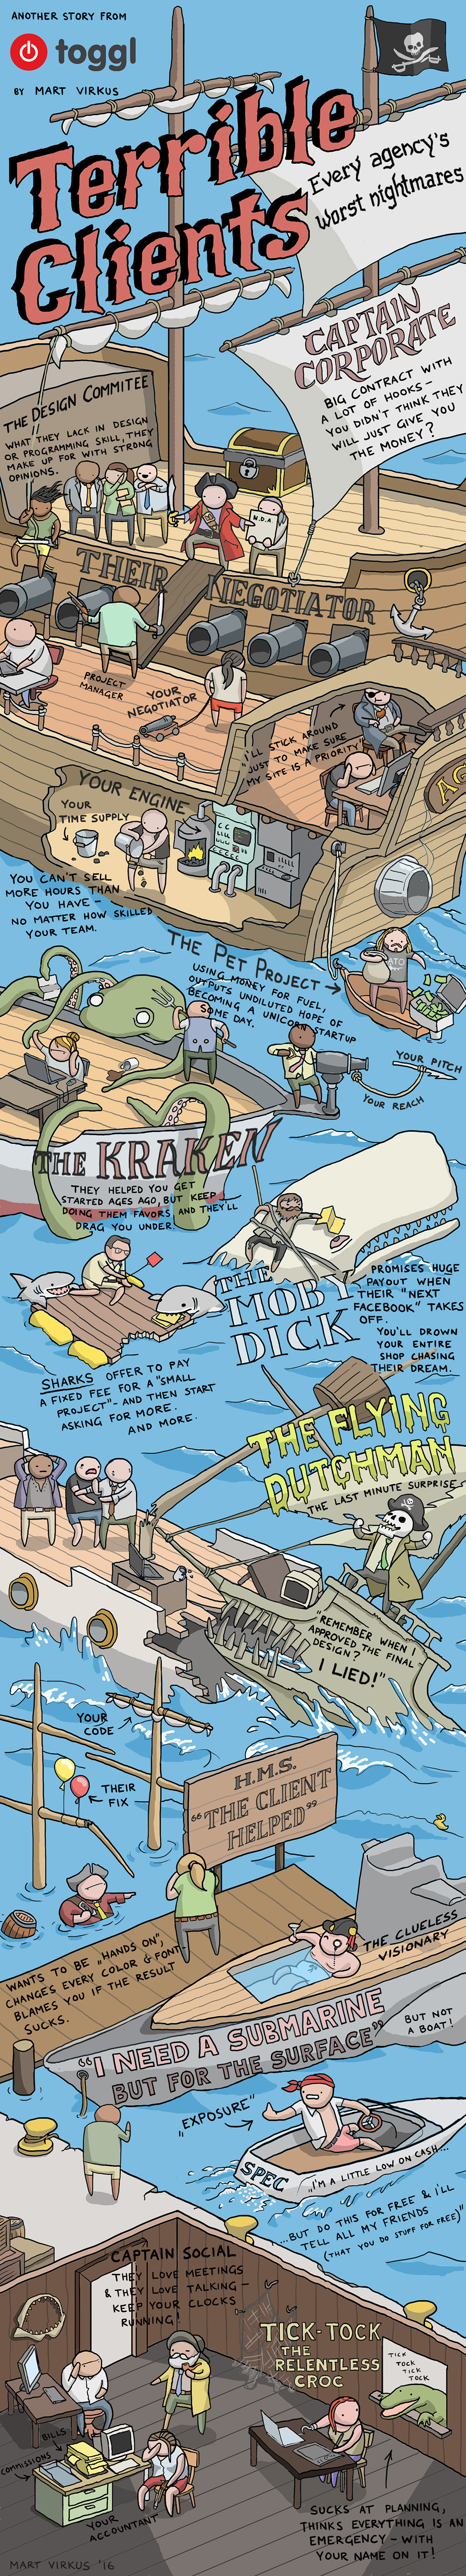 ANOTHER STORY FROM
toggl
BY MART VIRKUS
Terrible
Clients
Every agency's
worst nightmares
CAPTAIN
CORPORATE
BIG CONTRACT WITH
A LOT OF HOOKS-
YOU DIDN'T THINK THEY
WILL JUST GIVE YOU
THE MONEY?
THE DESIGN COMMITEE
WHAT THEY LACK IN DESIGN
OR PROGRAMMING SKILL, THEY
MAKE UP FOR WITH STRONG
OPINIONS.
N.D.A.
THEIR NEGOTIATOR
PROJECT
MANAGER
YOUR
NEGOTIATOR
"I'LL STICK AROUND
JUST TO MAKE SURE
MY SITE IS A PRIORITY"
YOUR ENGINE
YOUR
TIME SUPPLY
YOU CAN'T SELL
MORE HOURS THAN
YOU HAVE-
NO MATTER HOW SKILLED
YOUR TEAM.
THE PET PROJECT
USING MONEY FOR FUEL,
OUTPUTS UNDILUTED HOPE OF
BECOMING A UNICORN STARTUP
SOME DAY.
YOUR PITCH
YOUR REACH
THE KRAKEN
THEY HELPED YOU GET
STARTED AGES AGO, BUT KEEP
DOING THEM FAVORS AND THEY'LL
DRAG YOU UNDER.
THE
MOBY
DICK
PROMISES HUGE
PAYOUT WHEN
THEIR "NEXT
FACEBOOK" TAKES
OFF.
YOU'LL DROWN
YOUR ENTIRE
SHOP CHASING
THEIR DREAM.
SHARKS OFFER TO PAY
A FIXED FEE FOR A "SMALL
PROJECT"- AND THEN START
ASKING FOR MORE.
AND MORE.
THE FLYING
DUTCHMAN
THE LAST MINUTE SURPRISE
"REMEMBER WHEN I
APPROVED THE FINAL
DESIGN?
I LIED!"
YOUR
CODE
THEIR
FIX
H.M.S.
"THE CLIENT
HELPED"
WANTS TO BE "HANDS ON",
CHANGES EVERY COLOR & FONT-
BLAMES YOU IF THE RESULT
SUCKS.
THE CLUELESS
VISIONARY
"I NEED A SUBMARINE
BUT FOR THE SURFACE"
BUT NOT
A BOAT!
"EXPOSURE"
SPEC
"I'M A LITTLE LOW ON CASH...
...BUT DO THIS FOR FREE & I'LL
TELL ALL MY FRIENDS
(THAT YOU DO STUFF FOR FREE)"
CAPTAIN SOCIAL
THEY LOVE MEETINGS
& THEY LOVE TALKING-
KEEP YOUR CLOCKS
RUNNING!
TICK-TOCK
THE
RELENTLESS
CROC
TICK
TOCK
TICK
TOCK
BILLS
COMMISSIONS
YOUR
ACCOUNTANT
SUCKS AT PLANNING,
THINKS EVERYTHING IS AN
EMERGENCY-WITH
YOUR NAME ON IT!
MART VIRKUS '16